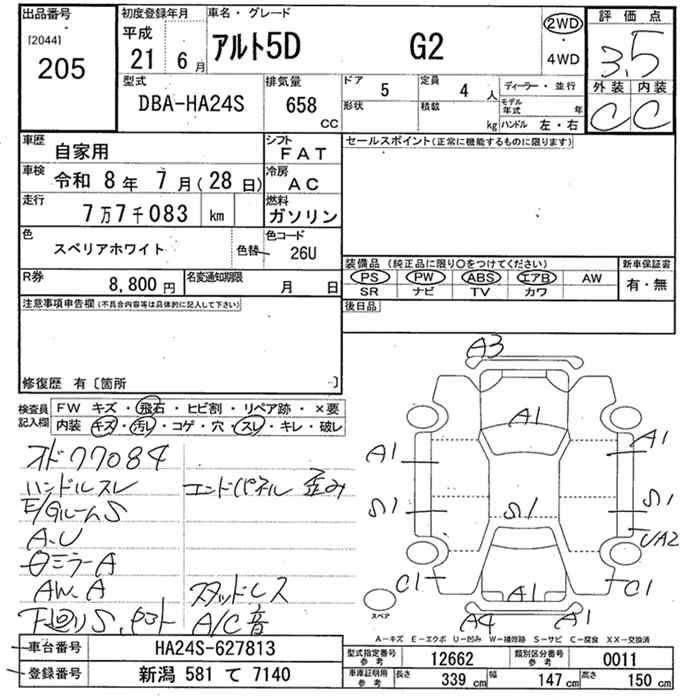 出品番号
[2044]
205
初度登録年月
平成
21 6 月
車名・グレード
アルト5D G2
2WD
・
4WD
評価点
3.5
外装 内装
C C
型式
DBA-HA24S
排気量
658 CC
ドア 5
形状
定員 4 人
積載 kg
ディーラー・並行
モデル年式 年
ハンドル 左・右
車歴
自家用
シフト
FAT
車検 令和 8 年 7 月 (28 日)
冷房
AC
走行
7 万 7 千 083 km
燃料
ガソリン
色
スペリアホワイト
色替
色コード
26U
R券
8,800 円
名変通知期限
月 日
セールスポイント(正常に機能するものに限ります)
装備品 (純正品に限り○をつけてください)
PS PW ABS エアB AW
SR ナビ TV カワ
新車保証書
有・無
後日品
注意事項申告欄(不具合内容等は具体的に記入して下さい)
修復歴 有〔箇所 〕
検査員記入欄
FW キズ・飛石・ヒビ割・リペア跡・×要
内装 キズ・汚レ・コゲ・穴・スレ・キレ・破レ
オド77084
ハンドルスレ エンドパネル 歪み
E/GルームS
A.U
ミラーA
AW.A スタッドレス
下廻りS. A/C音
A3
A1
A1 A1
S1 S1 S1
UA2
C1 C1
A1
A4 A1
スペア
A-キズ E-エクボ U-凹み W-補修跡 S-サビ C-腐食 XX-交換済
車台番号 HA24S-627813
登録番号 新潟 581 て 7140
型式指定番号
参考
12662
類別区分番号
参考
0011
車庫証明用
参考
長さ 339 cm
幅 147 cm
高さ 150 cm